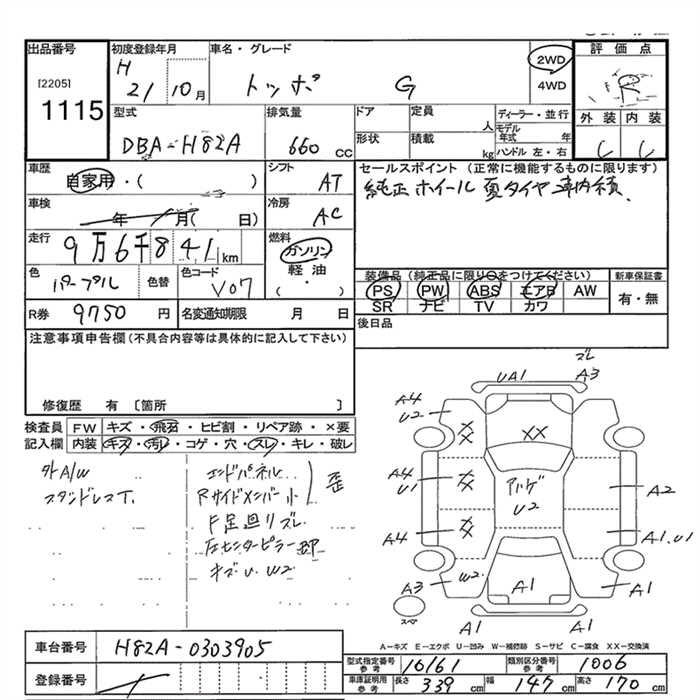 出品番号 初度登録年月 車名・グレード 評価点
[2205] H 2WD
1115 21 10月 トッポ G 4WD R
型式 排気量 ドア 定員 ディーラー・並行 外装 内装
DBA-H82A 660 CC 人 モデル年式 年 C C
形状 積載 kg ハンドル 左・右
車歴 シフト セールスポイント (正常に機能するものに限ります)
自家用・( ) AT 純正ホイール 夏タイヤ 車内積
車検 年 月( 日) 冷房 AC
走行 9万6千841 km 燃料 ガソリン
色 パープル 色替 色コード V07 軽油 ( )
装備品 (純正品に限り○をつけてください) 新車保証書
PS PW ABS エアB AW 有・無
SR ナビ TV カワ
R券 9750 円 名変通知期限 月 日 後日品
注意事項申告欄 (不具合内容等は具体的に記入して下さい)
修復歴 有 〔箇所 〕
検査員 FW キズ・飛石・ヒビ割・リペア跡・×要
記入欄 内装 キズ・汚レ・コゲ・穴・スレ・キレ・破レ
外A/W
スタッドレスT.
エンドパネル
Rサイドメンバー小 歪
F足廻リズレ
左センターピラー部
キズU W2
ズレ
UA1 A3
A4
U2 XX XX
A4
U1 XX アハゲ U2 A2
A4 XX A1.U1
A3 W2 A1 A1
スペア A1 A1
A-キズ E-エクボ U-凹み W-補修跡 S-サビ C-腐食 XX-交換済
車台番号 H82A-0303905
登録番号
型式指定番号 参考 16161 類別区分番号 参考 1006
車庫証明用 参考 長さ 339 cm 幅 147 cm 高さ 170 cm